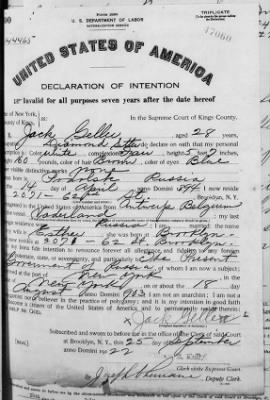 Form 2203
U. S. DEPARTMENT OF LABOR
NATURALIZATION SERVICE
TRIPLICATE
47060
UNITED STATES OF AMERICA
DECLARATION OF INTENTION
Invalid for all purposes seven years after the date hereof
State of New York,
County of Kings,
In the Supreme Court of Kings County.
I, Jack Geller, aged 28 years,
occupation Diamond do declare on oath that my personal
description is: Color White, complexion Fair, height 5 feet 7 inches,
weight 160 pounds, color of hair Brown, color of eyes Blue
other visible distinctive marks None
I was born in Russia
on the 14 day of April, anno Domini 1894; I now reside
at 2071 - 62nd St., Brooklyn, N.Y.
I emigrated to the United States of America from Antwerp Belgium
on the vessel Vaderland; my last
foreign residence was Russia; I am married; the name
of my wife is Esther; she was born at Brooklyn
and now resides at 2071 - 62 St Brooklyn
It is my bona fide intention to renounce forever all allegiance and fidelity to any foreign
prince, potentate, state, or sovereignty, and particularly to The Present
Government of Russia, of whom I am now a subject;
I arrived at the port of New York, in the
State of New York, on or about the 18 day
of August, anno Domini; I am not an anarchist; I am not a
polygamist nor a believer in the practice of polygamy; and it is my intention in good faith
to become a citizen of the United States of America and to permanently reside therein:
SO HELP ME GOD.
Jack Geller
Subscribed and sworn to before me in the office of the Clerk of said Court
at Brooklyn, N. Y., this 25 day of September
anno Domini 1922
Clerk of the Supreme Court.
By Joseph, Deputy Clerk.